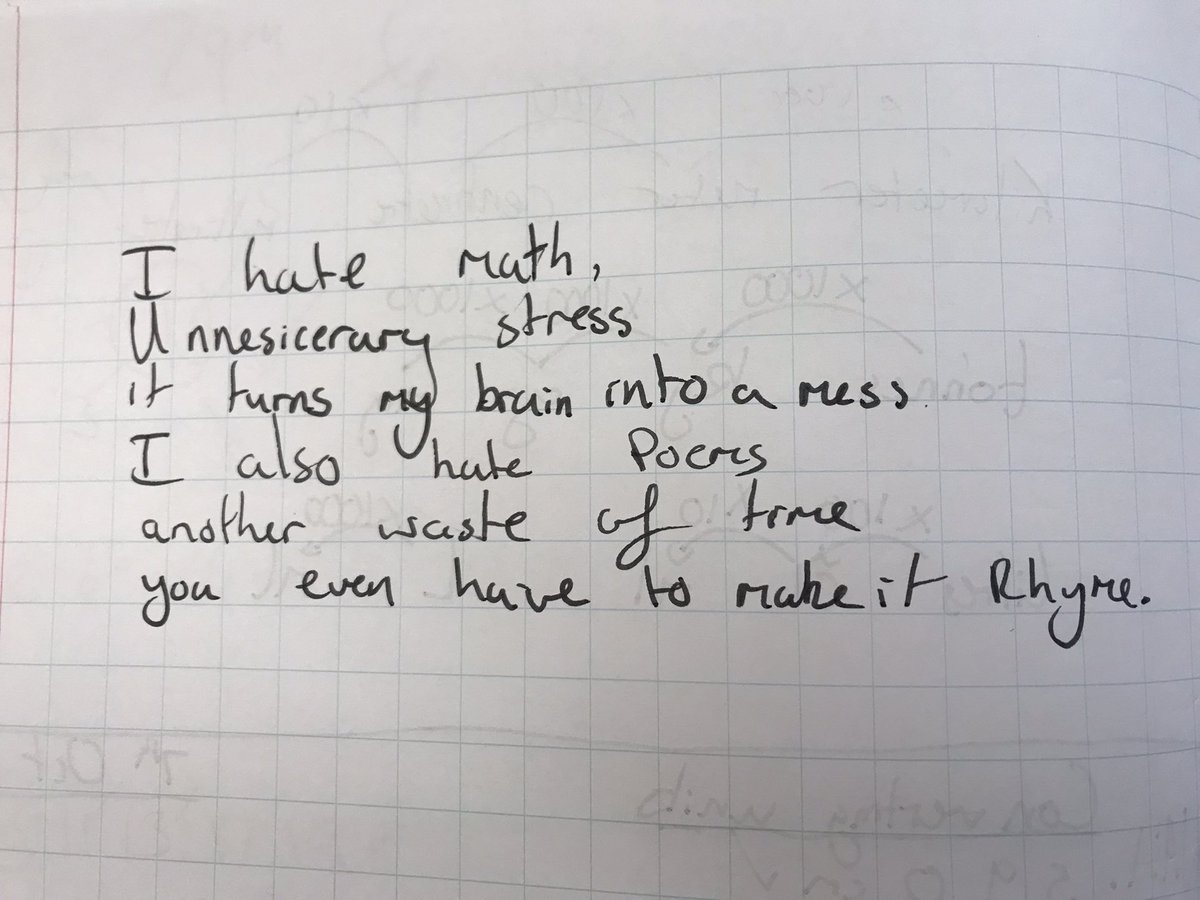 I hate math,
Unnesicerary stress
it turns my brain into a mess.
I also hate Poems
another waste of time
you even have to make it Rhyme.
x1000
Converting units